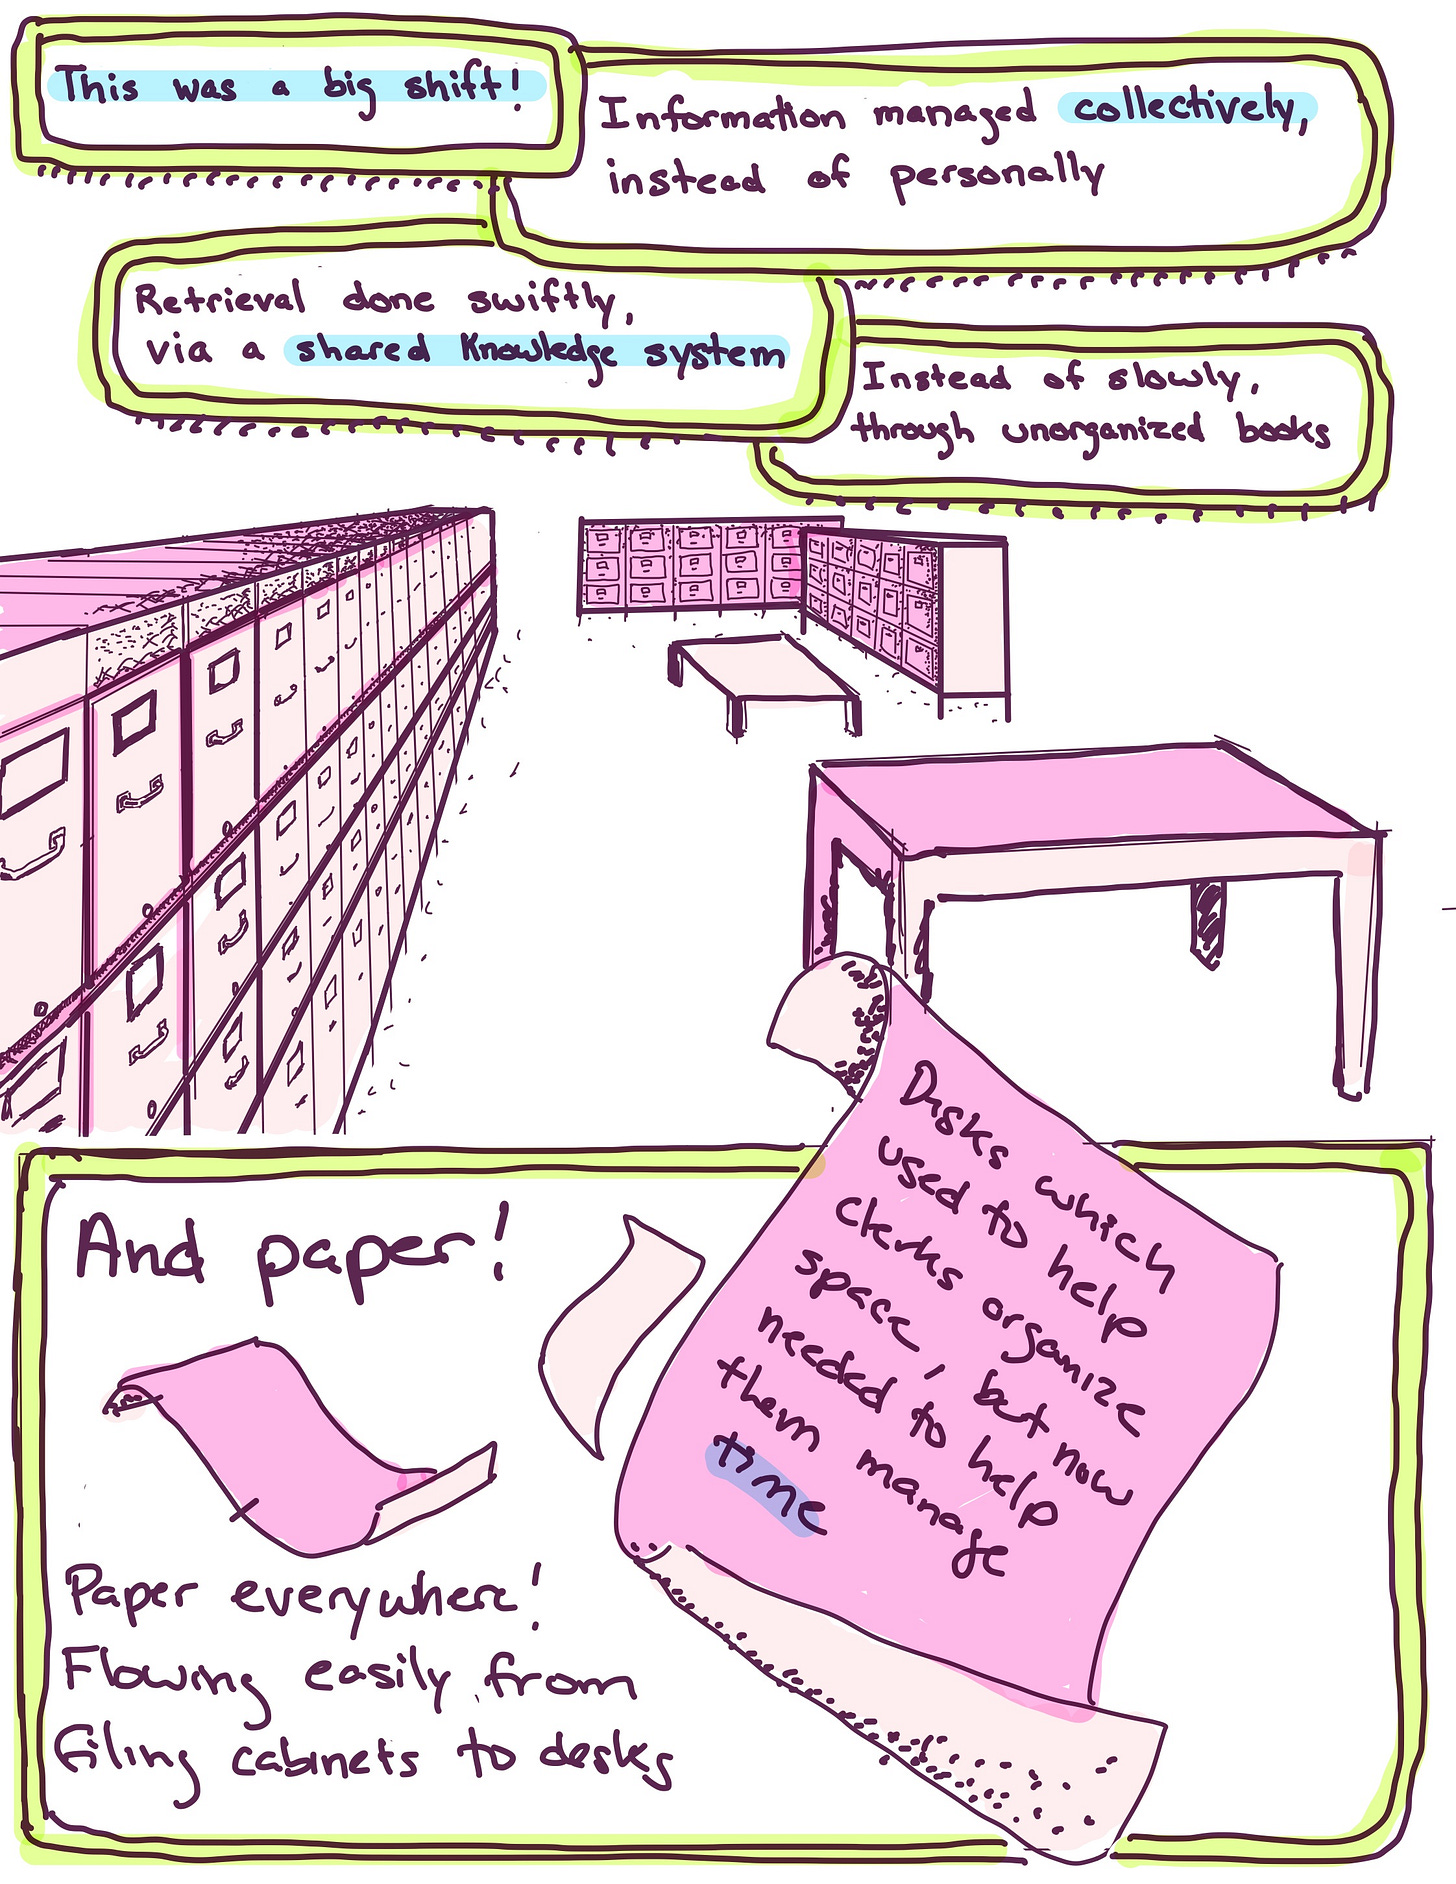 This was a big shift!
Information managed collectively,
instead of personally
Retrieval done swiftly,
via a shared Knowledge system
Instead of slowly,
through unorganized books
And paper!
Paper everywhere!
Flowing easily from
filing cabinets to desks
Disks which
used to help
clerks organize
space, but now
needed to help
them manage
time